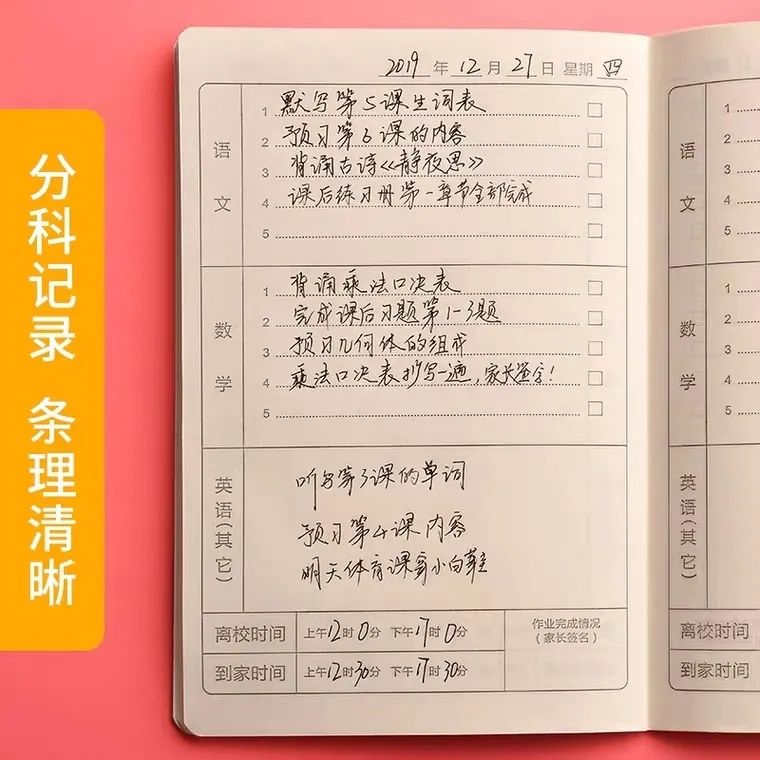 分科记录 条理清晰
2019年12月27日 星期四
语文
1 默写第5课生词表
2 预习第6课的内容
3 背诵古诗《静夜思》
4 课后练习册第一章节全部完成
5
数学
1 背诵乘法口决表
2 完成课后习题第1-3题
3 预习几何体的组成
4 乘法口决表抄写一遍,家长签字!
5
英语(其它)
听写第3课的单词
预习第4课内容
明天体育课穿小白鞋
离校时间 上午12时0分 下午17时0分
到家时间 上午12时30分 下午17时30分
作业完成情况
(家长签名)
语文
1
2
3
4
5
数学
1
2
3
4
5
英语(其它)
离校时间
到家时间